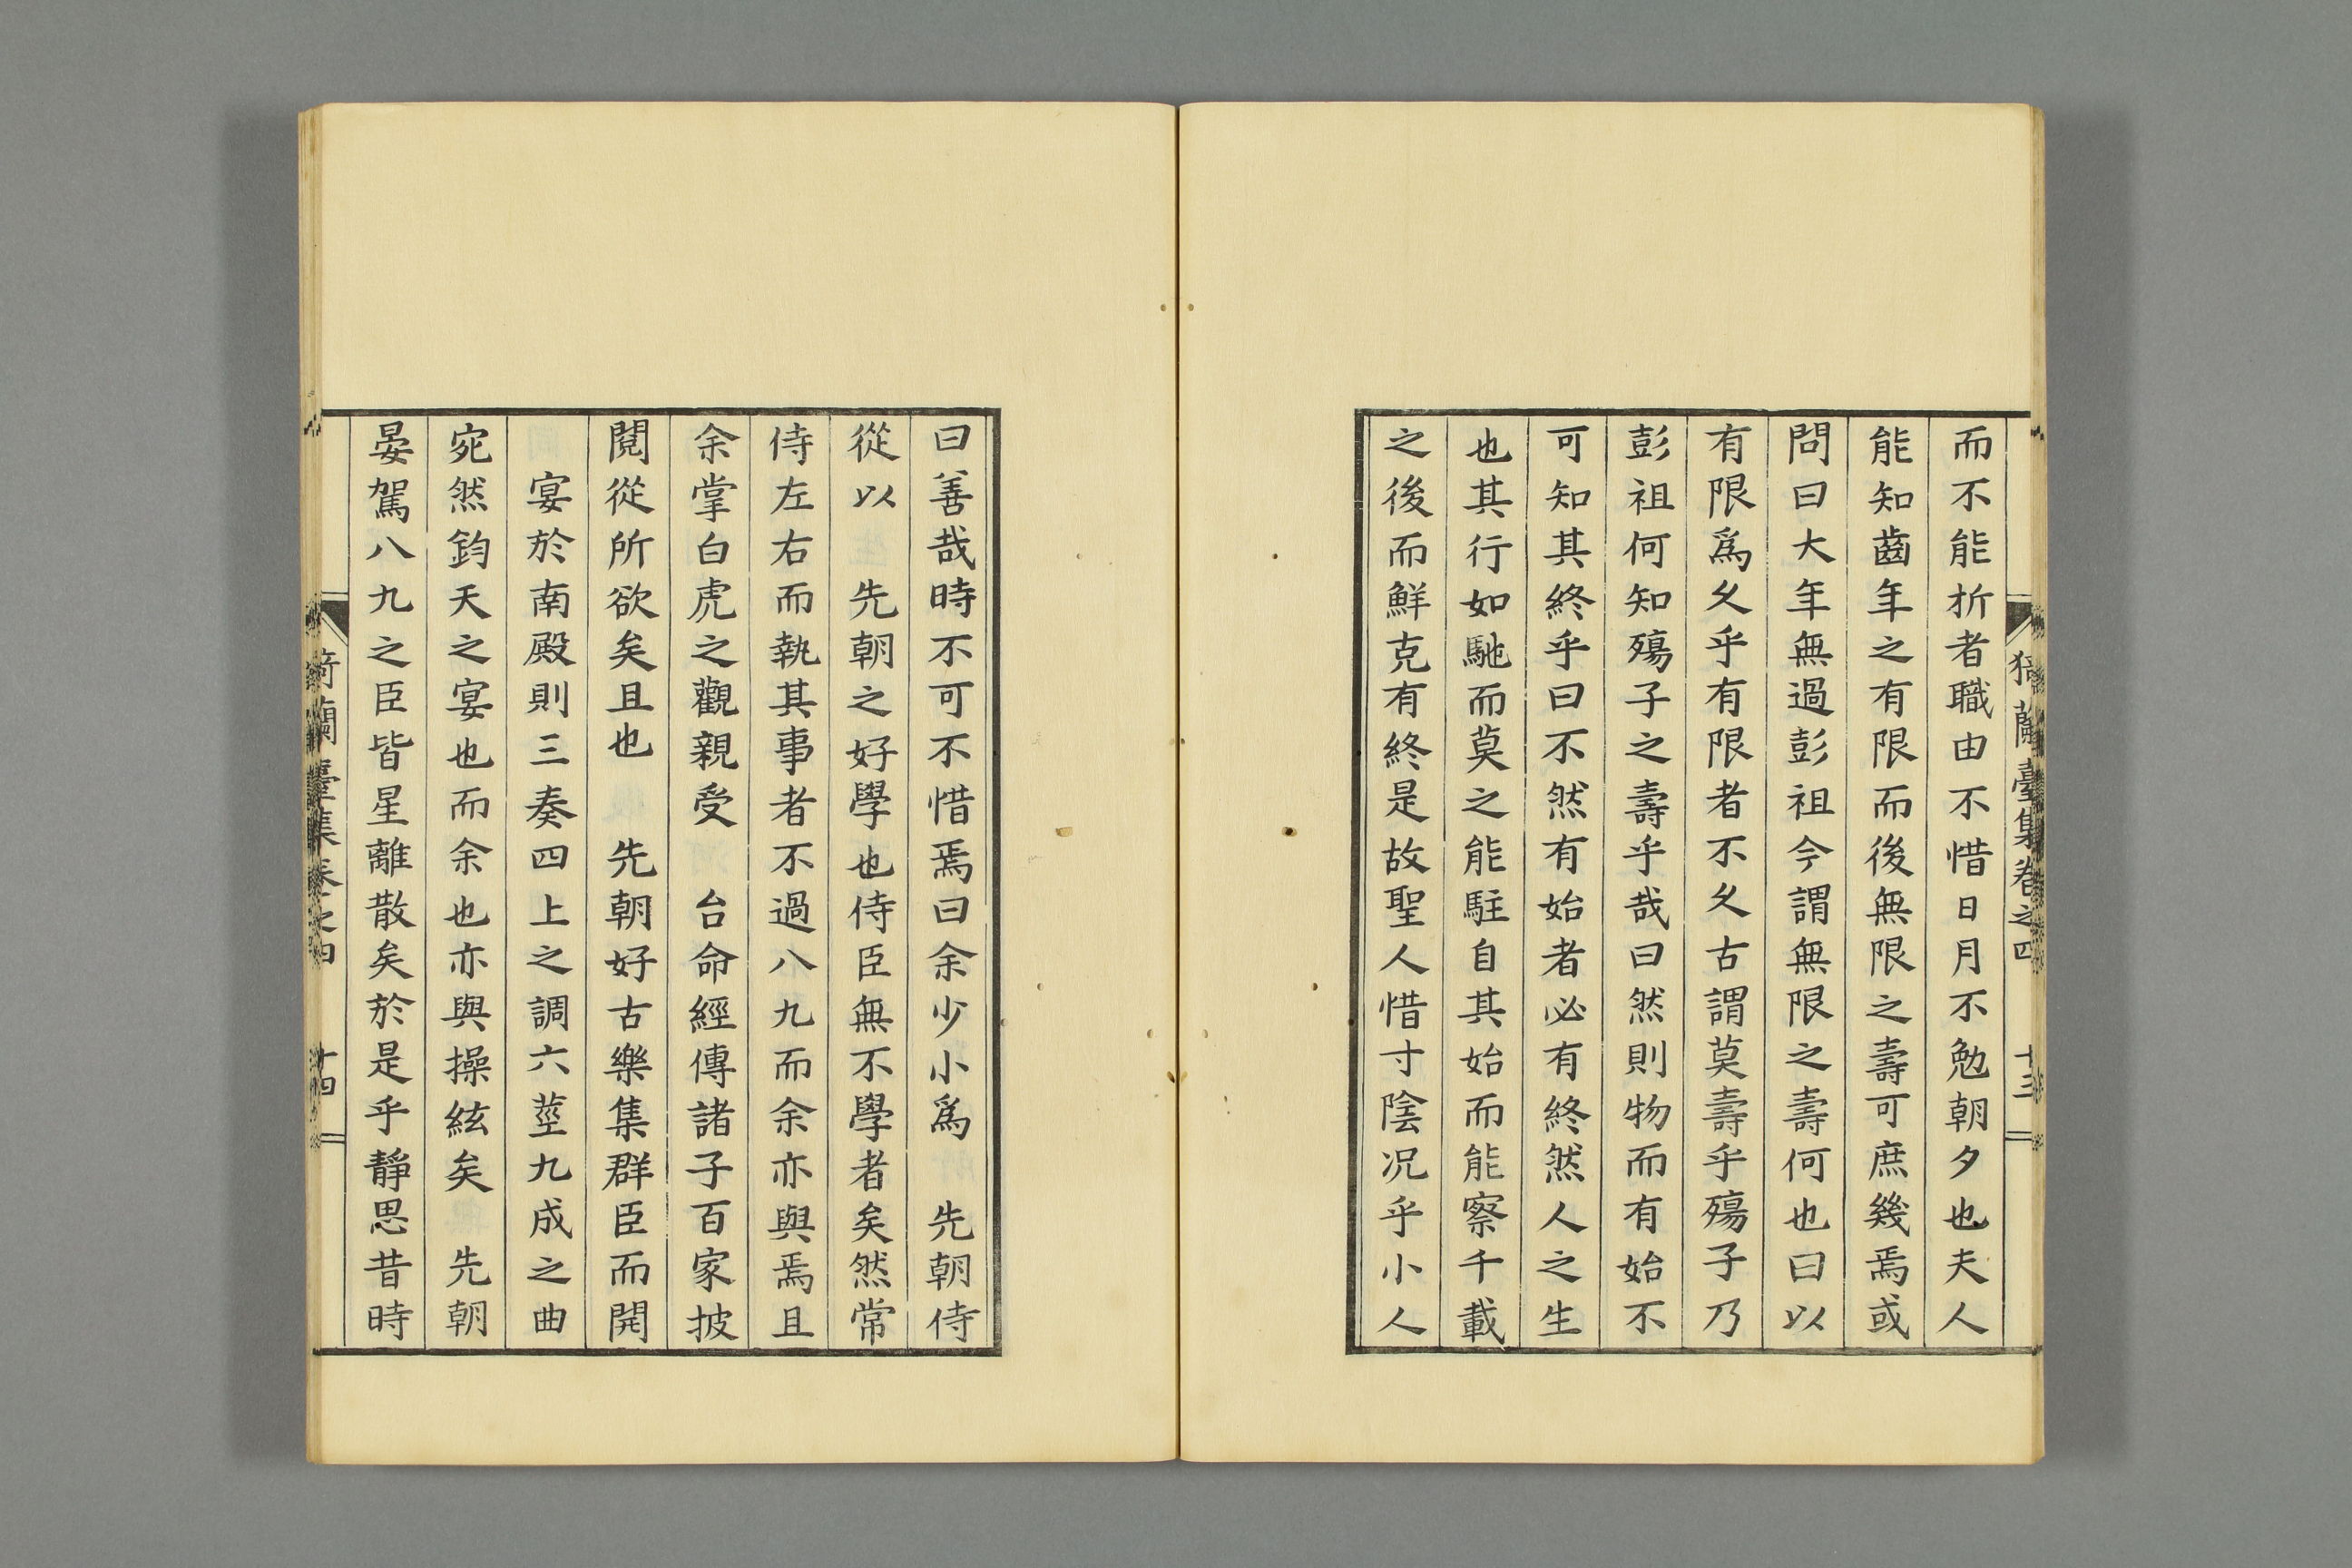 猗蘭臺集卷之四 十三
而不能折者職由不惜日月不勉朝夕也夫人
能知齒年之有限而後無限之壽可庶幾焉或
問曰大年無過彭祖今謂無限之壽何也曰以
有限爲久乎有限者不久古謂莫壽乎殤子乃
彭祖何知殤子之壽乎哉曰然則物而有始不
可知其終乎曰不然有始者必有終然人之生
也其行如馳而莫之能駐自其始而能察千載
之後而鮮克有終是故聖人惜寸陰况乎小人
曰善哉時不可不惜焉曰余少小爲 先朝侍
從以 先朝之好學也侍臣無不學者矣然常
侍左右而執其事者不過八九而余亦與焉且
余掌白虎之觀親受 台命經傳諸子百家披
閱從所欲矣且也 先朝好古樂集群臣而開
宴於南殿則三奏四上之調六莖九成之曲
宛然鈞天之宴也而余也亦與操絃矣 先朝
晏駕八九之臣皆星離散矣於是乎靜思昔時
猗蘭臺集卷之四 十四